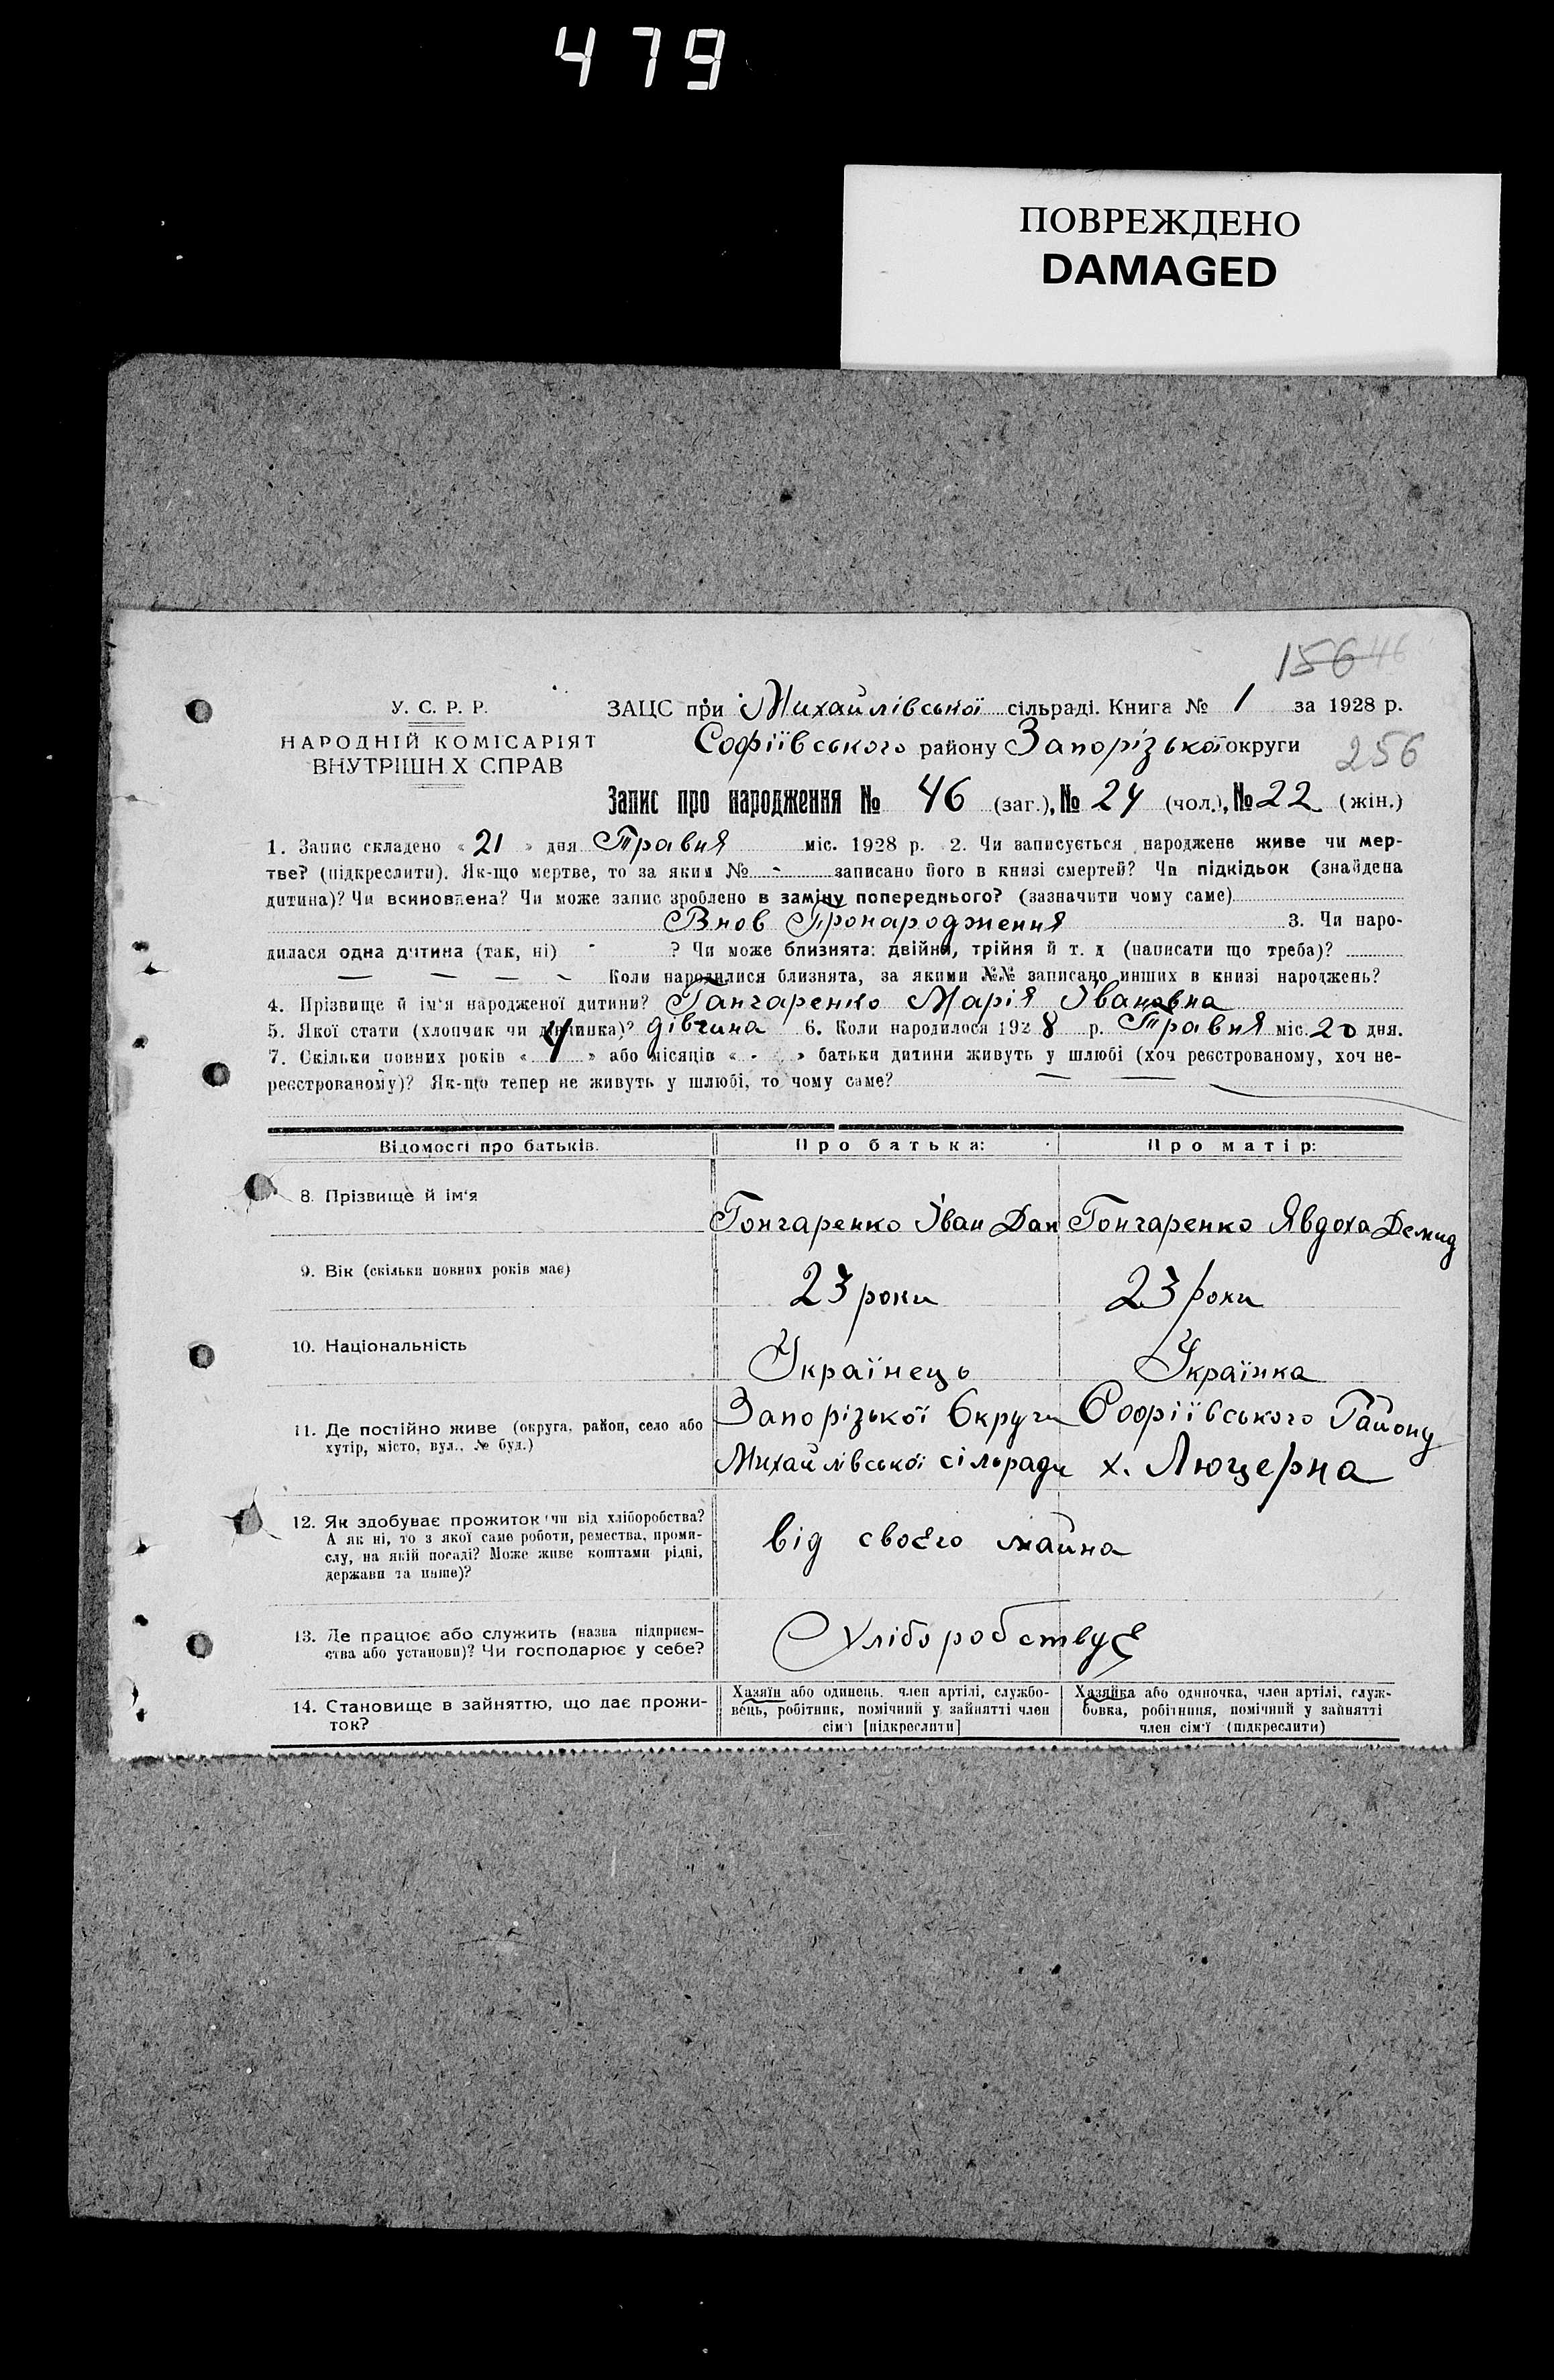 479
ПОВРЕЖДЕНО
DAMAGED
156 46
У. С. Р. Р.
НАРОДНІЙ КОМІСАРІЯТ
ВНУТРІШН Х СПРАВ
ЗАЦС при Михайлівської сільраді. Книга № 1 за 1928 р.
Софіївського району Запорізької округи
256
Запис про народження № 46 (заг.), № 24 (чол.), № 22 (жін.)
1. Запис складено « 21 » дня Травня міс. 1928 р. 2. Чи записується народжене живе чи мер-
тве? (підкреслити). Як-що мертве, то за яким № - записано його в книзі смертей? Чи підкідьок (знайдена
дитина)? Чи всиновлена? Чи може запис зроблено в заміну попереднього? (зазначити чому саме)
Внов Пронародження 3. Чи наро-
дилася одна дитина (так, ні) - ? Чи може близнята: двійня, трійня й т. д (написати що треба)?
— — — — Коли народилися близнята, за якими №№ записано инших в книзі народжень?
4. Прізвище й ім'я народженої дитини? Ганчаренко Марія Івановна
5. Якої статі (хлопчик чи дівчинка)? дівчина 6. Коли народилося 1928 р. Травня міс. 20 дня.
7. Скільки повних років « 4 » або місяців « - » батьки дитини живуть у шлюбі (хоч реєстрованому, хоч не-
реєстрованому)? Як-що тепер не живуть у шлюбі, то чому саме? — —
Відомості про батьків. Про батька: Про матір:
8. Прізвище й ім'я Гончаренко Іван Дан Гончаренко Явдоха Демид
9. Вік (скільки повних років має) 23 роки 23 роки
10. Національність Українець Українка
11. Де постійно живе (округа, район, село або
хутір, місто, вул., № буд.)
Запорізької Округи Софіївського Району
Михайлівської сільради х. Люцерна
12. Як здобуває прожиток чи від хліборобства?
А як ні, то з якої саме роботи, ремества, проми-
слу, на якій посаді? Може живе коштами рідні,
держави та инше)?
від своєго майна
13. Де працює або служить (назва підприєм-
ства або установи)? Чи господарює у себе?
Хліборобствує
14. Становище в зайняттю, що дає прожи-
ток?
Хазяїн або одинець, член артілі, службо-
вець, робітник, помічний у зайнятті член
сім'ї [підкреслити]
Хазяйка або одиночка, член артілі, служ-
бовка, робітниця, помічний у зайнятті
член сім'ї (підкреслити)